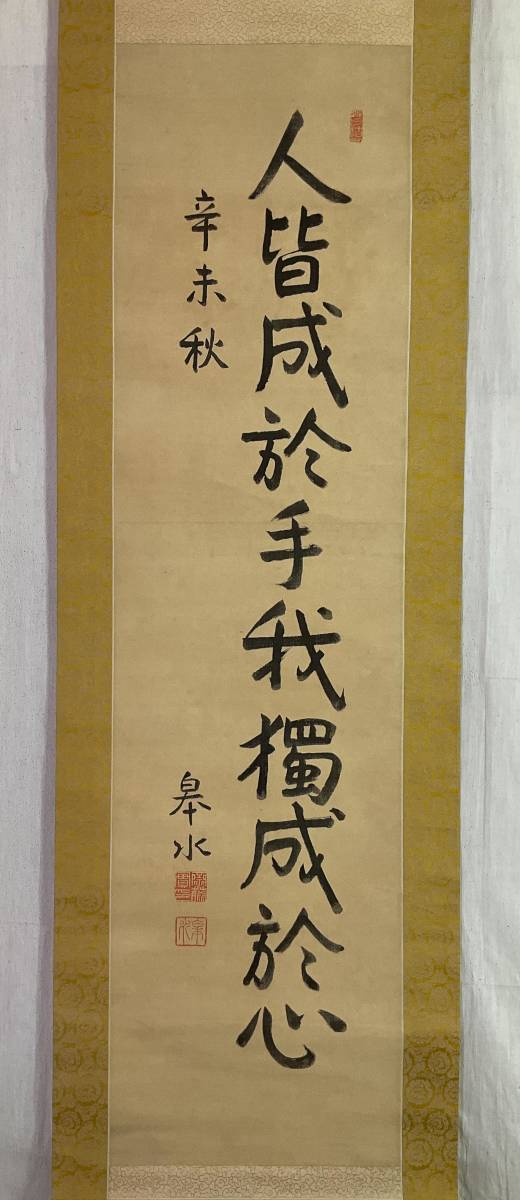 人皆成於手我獨成於心
辛未秋
皋水